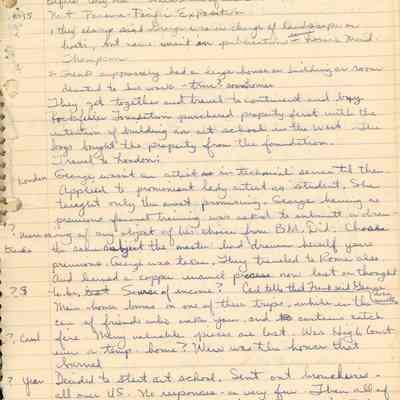 1915 Not Panama-Pacific Exposition
1 they always said George was in charge of landscape or
lights, but name wasn't on publications
Thompson
2. Frank supposedly had a large house or building or room
devoted to his work - true? someone
They got together and travel to continent and buy
Rockefeller Foundation purchased property first with the
intention of building an art school in the West. The
boys bought the property from the foundation.
Travel to London:
London George wasn't an artist in technical sense til then
Applied to prominent lady artist as student. She
taught only the most promising. George having no
previous formal training was asked to submit a draw-
ing of any object of his choice from B.M. Did. Chose
the same subject the master had drawn herself years
previous. George was taken. They traveled to Rome also
and learned a copper enamel process now lost or thought
? $ to be, Source of income? Ceil tells that Frank and George
Main house burns on one of these trips, while in the
care of friends who wax year, and contents catch
? Ceal fire. Many valuable pieces are lost. Was High Court
ever a temp. home? Were was the house that
burned
? year Decided to start art school. Sent out brouchures -
all over US. No responses - or very few. Then all of